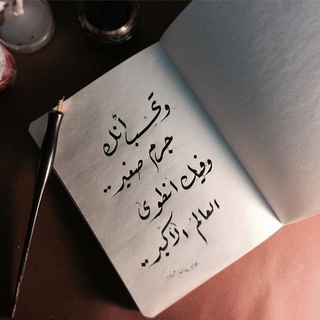 وتحسب أنك
جرم صغير..
وفيك انطوى
العالم الأكبر..